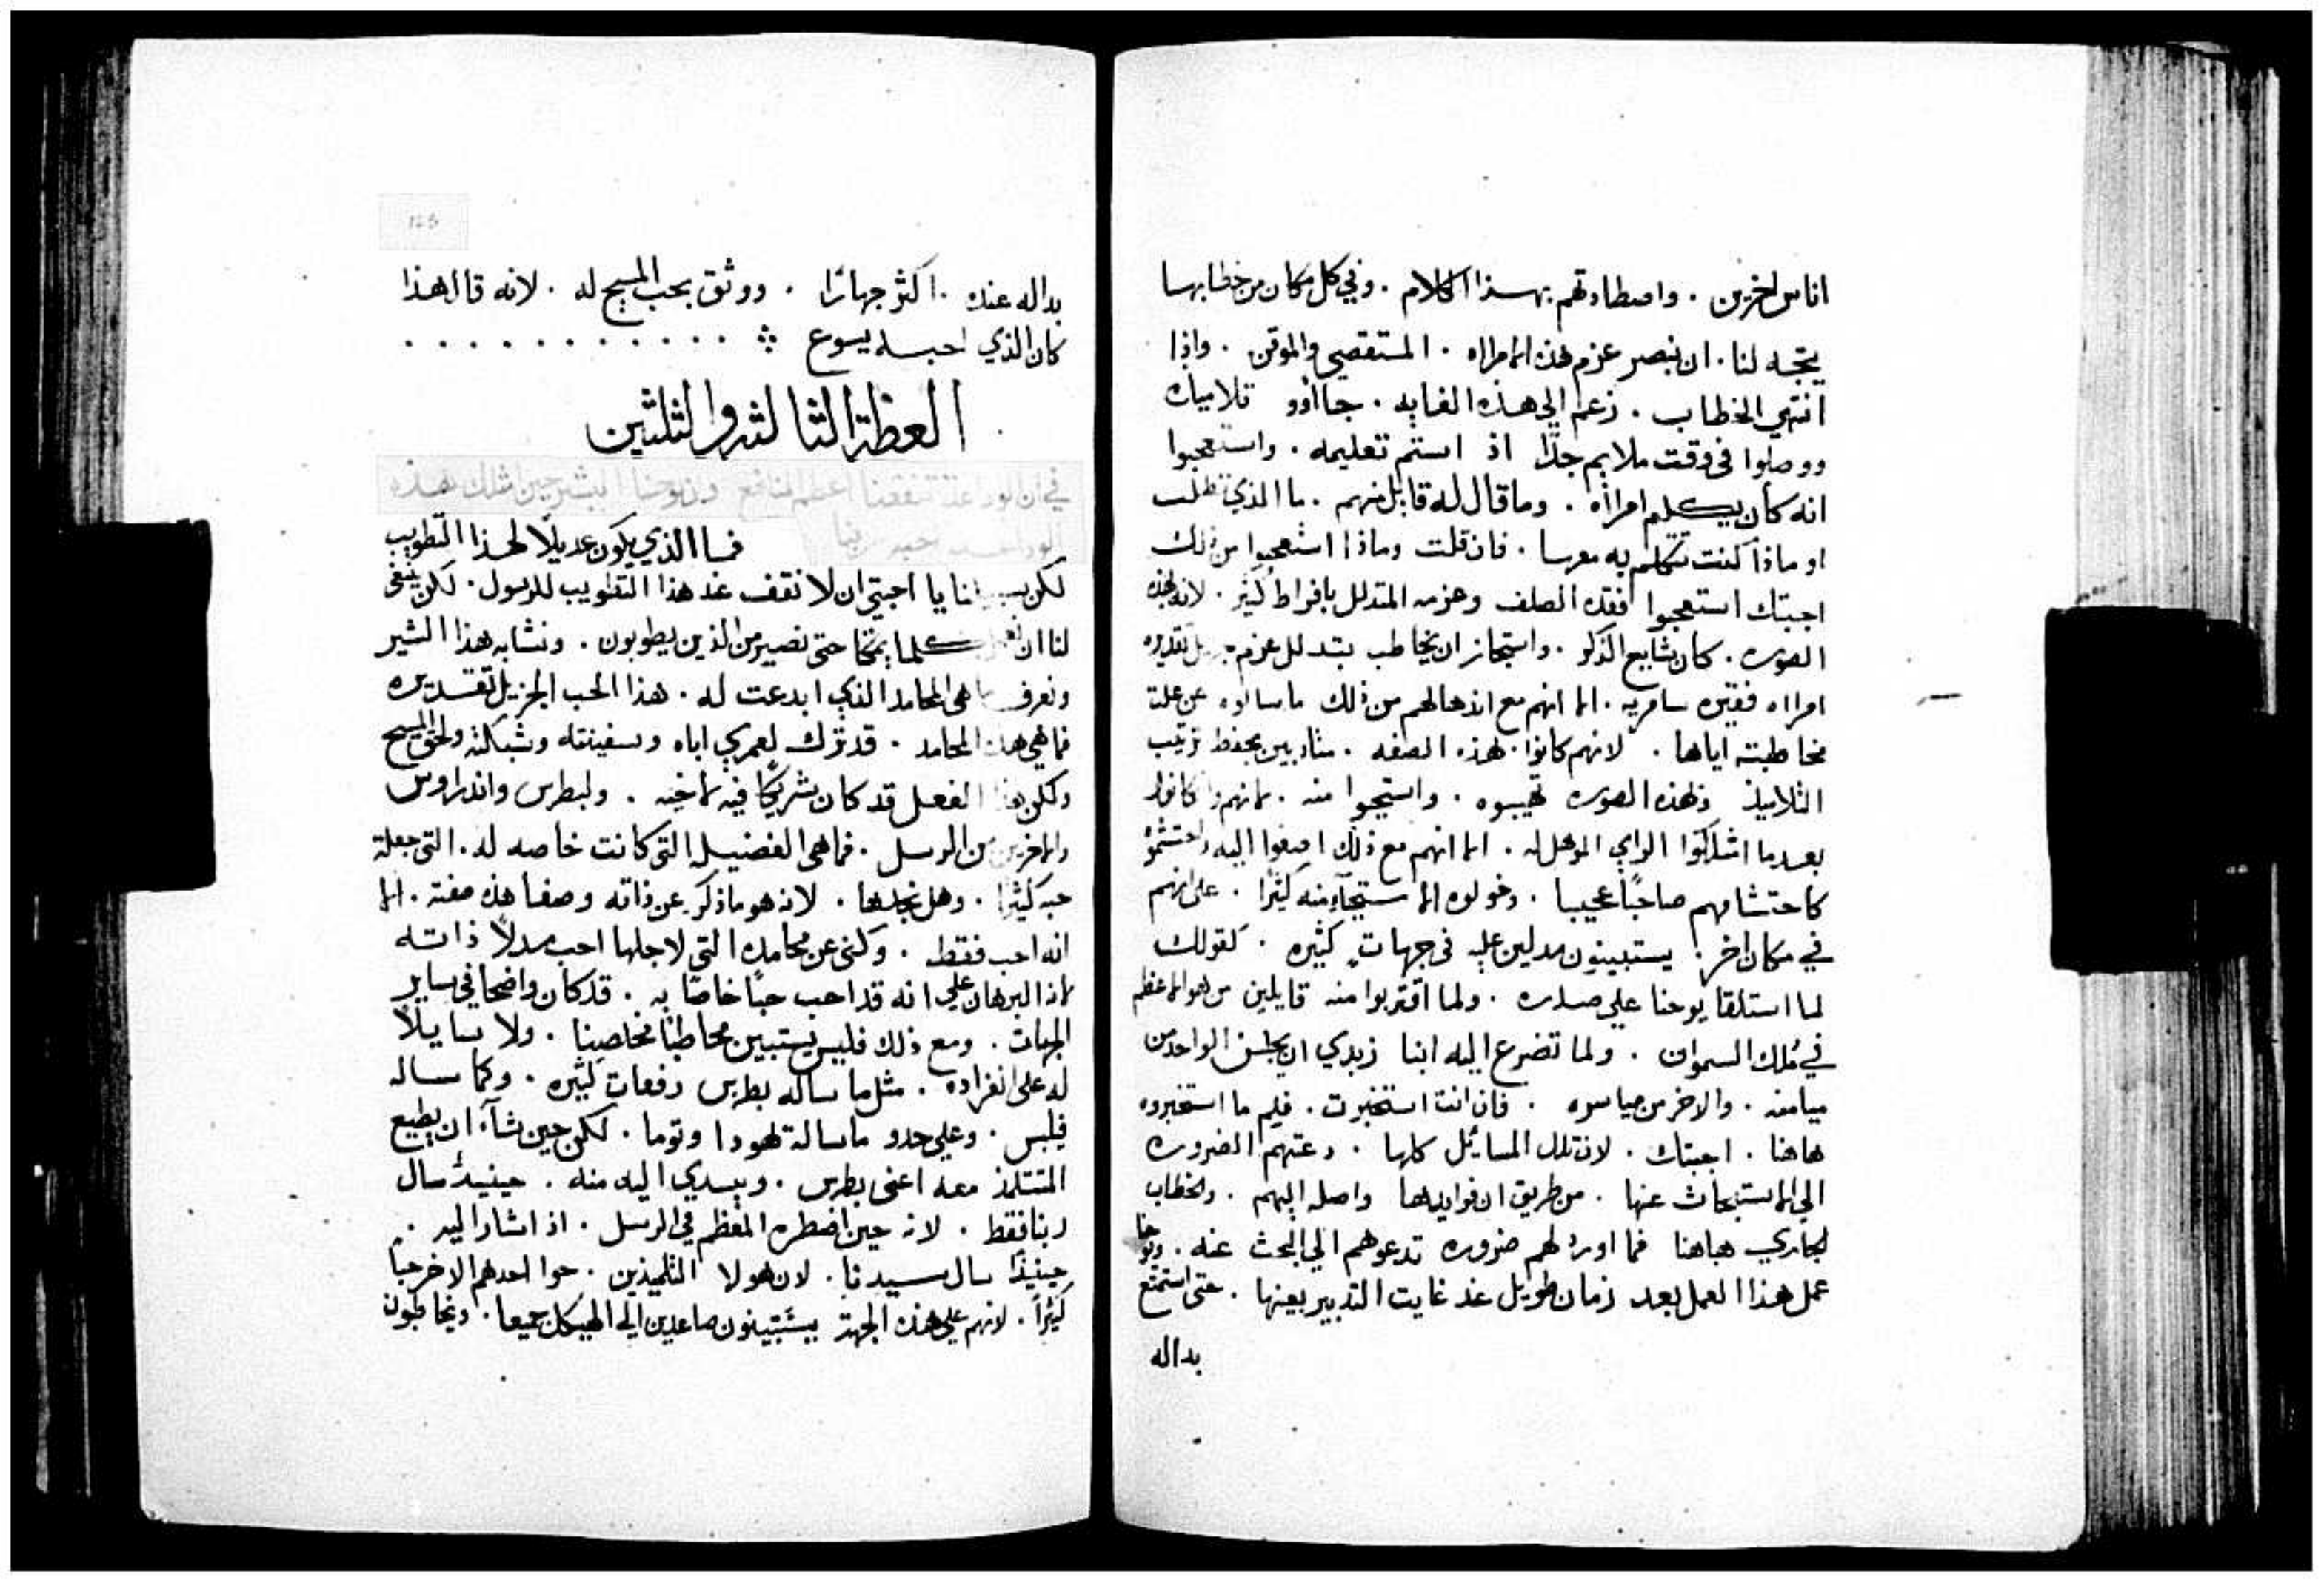 اناس اخرين . واصطادتهم بهذا الكلام . وفي كل مكان من خطابها
يتجه لنا . ان نبصر عزم هذه الامراه . المستقصي والموقن . واذا
انتهي الخطاب . زعم الي هذه الغايه . جااوو تلاميذه
ووصلوا في وقت ملايم جدًا اذ استتم تعليمه . واستعجبوا
انه كان يكلم امراه . وما قال له قايل منهم . ما الذي تطلب
او ماذا كنت تتكلم به معها . فان قلت وماذا استعجبوا من ذلك
اجبتك استعجبوا فقده الصلف وعزمه المتدلل بافراط كثير . لانه بهذه
الصوره . كان شايع الذكر . واستجاز ان يخاطب بتدلل عزم تقديره
امراه فقيره سامريه . الا انهم مع اندهالهم من ذلك ما سالوه عن علة
مخاطبته اياها . لانهم كانوا بهذه الصفه . متادبين بحفظ ترتيب
التلاميذ وبهذه الصوره تهيبوه . واستحيوا منه . لانهم وان كانوا
بعد ما اشركوا الراي الموهل له . الا انهم مع ذلك اصغوا اليه واحتشموه
كاحتشامهم صاحبًا عجيبا . وخولوه الاستحيآ منه كثيرًا . علي انهم
في مكان اخر . يستبينون مدلين عليه في جهات كثيره . كقولك
لما استلقا يوحنا علي صدره . ولما اقتربوا منه قايلين من هو الاعظم
في ملك السموات . ولما تضرع اليه ابنا زبدي ان يجلس الواحد من
ميامنه . والاخر من مياسره . فان انت استخبرت . فلم ما استخبروه
هاهنا . اجبتك . لان تلك المسائل كلها . دعتهم الضروره
الي الاستبحاث عنها . من طريق ان فوايدها واصله اليهم . والخطاب
الجاري هاهنا فما اورد لهم ضروره تدعوهم الي البحث عنه . ويوحنا
عمل هذا العمل بعد زمان طويل عند غايت التدبير بعينها . حتي استمتع
بداله
125
بداله عنده . اكثر جهارًا . ووثق بحب المسيح له . لانه قال هذا
كان الذي احبه يسوع . . . . . . . . . . .
العظة الثالثه والثلثين
في ان الوداعة تنفعنا اعظم المنافع وان يوحنا البشير حين ملك هذه
الوداعه احبه ربنا
فما الذي يكون عديلًا لهذا التطويب
لكن يا احبتي ان لا نقف عند هذا التطويب للرسول . لكن ينبغي
لنا ان نعمل كلما يمكنا حتي نصير من الذين يطوبون . ونشابه هذا البشير
ونعرف ما هي المحامد الذي ابدعت له . هذا الحب الجزيل تقديره
فما هي هذه المحامد . قد ترك لعمري اباه وسفينته وشبكته ولحق المسيح
ولكن هذا الفعل قد كان شريكًا فيه لاخيه . ولبطرس واندراوس
والاخرين من الرسل . فما هي الفضيله التي كانت خاصه له . التي جعلة
حبه كثيرًا . وهل نجدها . لانه هو ما ذكر عن ذاته وصفا هذه صفته . الا
انه احب فقط . وكني عن محامده التي لاجلها احب مدلًا ذاته
لان البرهان علي انه قد احب حبًا خاصًا به . قد كان واضحا في ساير
الجهات . ومع ذلك فليس يستبين مخاطبًا مخلصنا . ولا سايلًا
له علي انفراده . مثل ما ساله بطرس دفعات كثيره . وكما ساله
فيلبس . وعلي حدو ما ساله يهودا وتوما . لكن حين شآء ان يطيع
المتتلمذ معه اعني بطرس . ويسدي اليه منه . حينيذ سال
ربنا فقط . لانه حين اضطره المعظم في الرسل . اذ اشار اليه .
حينيذًا سال سيدنا . لان هولا التلميذين . حوا احدهم الاخر حبًا
كثيرًا . لانهم علي هذه الجهة يستبينون صاعدين الي الهيكل جميعا . ويخاطبون